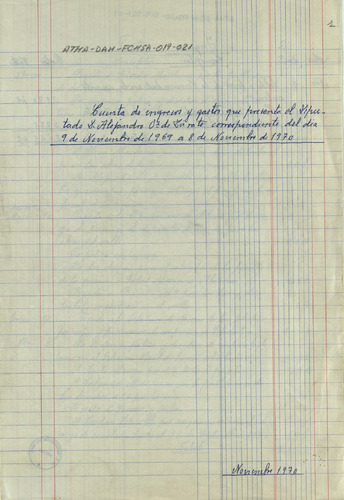 1
ATHA-DAH-FCHSA-019-021
Cuenta de ingresos y gastos que presenta el Dipu-
tado D. Alejandro Oº de correspondiente del día
9 de Noviembre de 1969 a 8 de Noviembre de 1970
Noviembre 1970